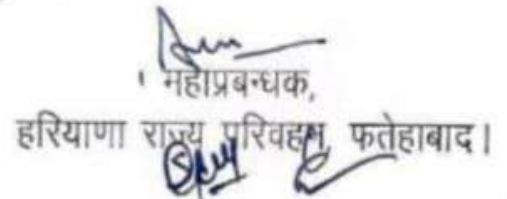 महाप्रबन्धक,
हरियाणा राज्य परिवहन, फतेहाबाद।